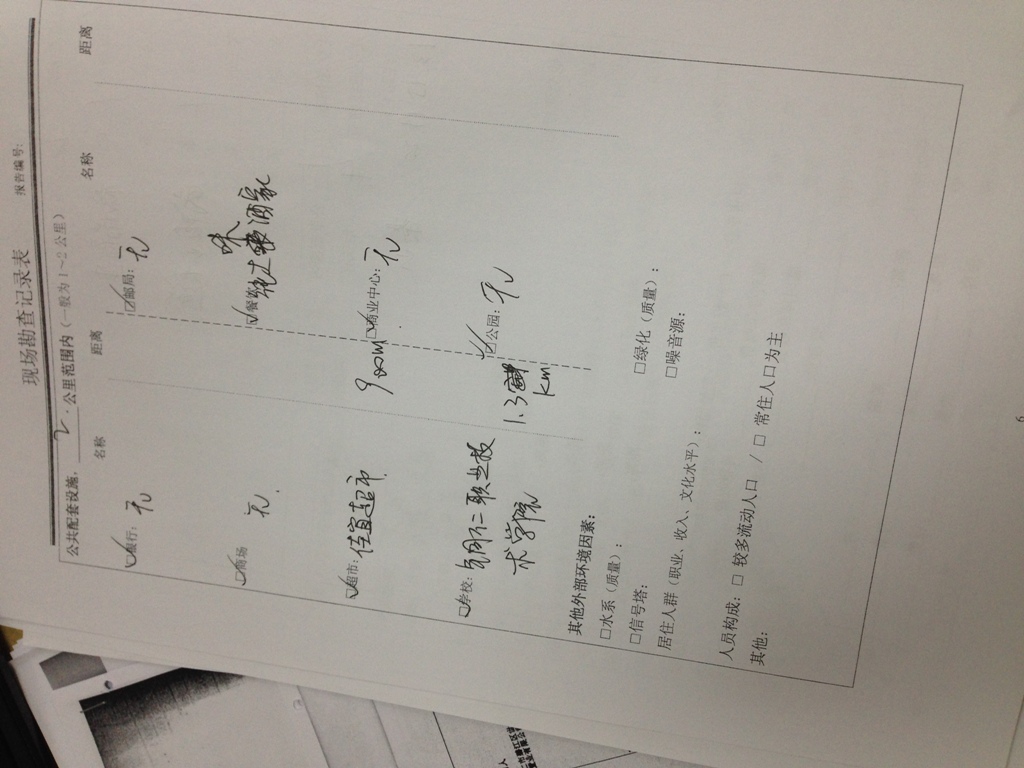 现场勘查记录表
报告编号:
公共配套设施, 2 公里范围内(一般为 1~2 公里)
名称 距离 名称 距离
银行: 无 邮局: 无
商场 无 餐饮 酒家
超市: 信宜超市 900M 商业中心: 无
学校: 第二职业技术学院 1.3 km 公园: 无
其他外部环境因素:
□水系(质量): □绿化(质量):
□信号塔: □噪音源:
居住人群(职业、收入、文化水平):
人员构成: □ 较多流动人口 / □ 常住人口为主
其他:
6